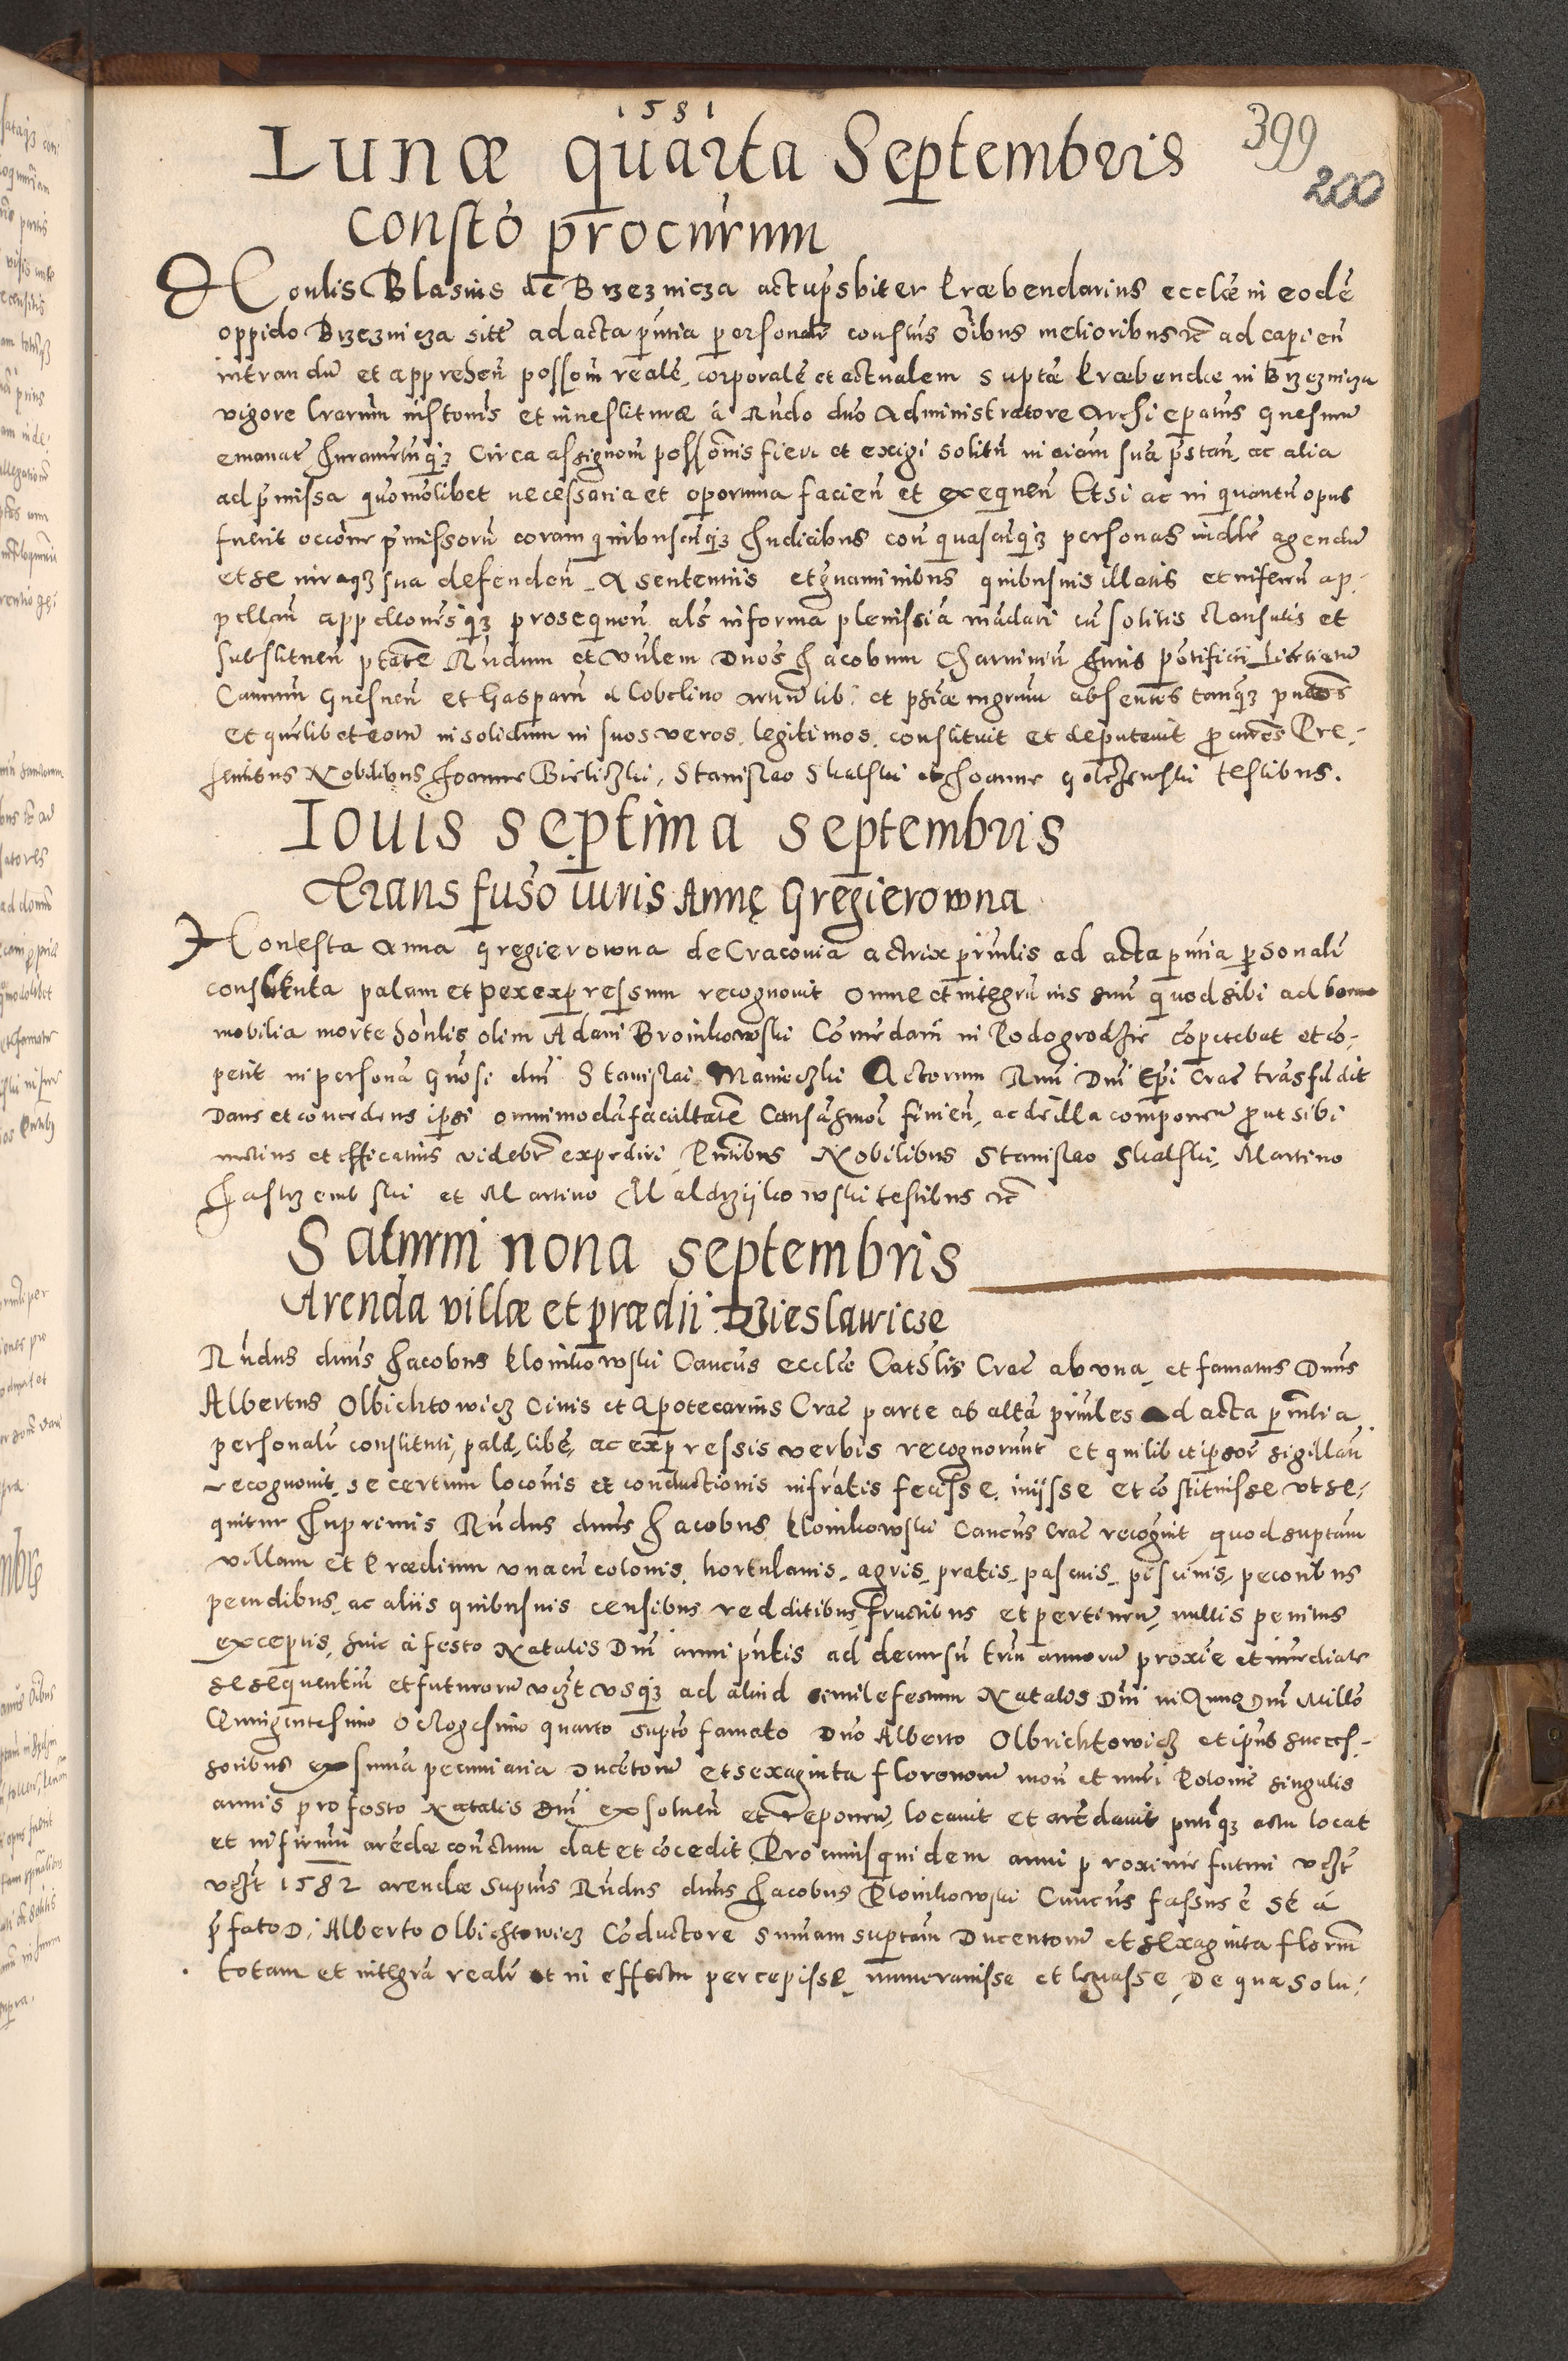 1581
Lunæ quarta Septembris
399
200
Constõ procurum
Honlis Blasius de Brzeznicza actu psbiter Præbendarius eccłæ in eodē
oppido Brzeznicza sitæ ad acta pntia personalr constus oibus melioribus rc ad capien
intrandū et apprehen possom realē, corporalē et actualem suptæ Præbendæ in Brzeznicza
vigore lrarum instonis et inuestituræ a Rndo dno Administratore Archi epatus Gnesnen
emanat Juramtūqz circa assignom possonis fieri et exigi solitū in aiam suā pstan, ac alia
ad pmissa quomolibet necessaria et oportuna facien et exequen Etsi ac in quantū opus
fuerit occõne pmissorū coram quibuscūqz Judicibus con quascūqz personas iudlr agendū
et se iuraqz sua defenden A sententiis et gnaminibus quibusuis illatis et inferen ap-
pellan appellonesqz prosequen als in forma plenissiā mādati cū solitis clausulis et
substituen ptate Rndum et Vnlem Dnos Jacobum Charninū Juris pontificii Licentiatū
Cancum Gnesnen et Gasparū a Lobelino artiū lib: et phiæ mgrum absentes tanqz pntes
et quelibet eorū in solidum in suos veros, legitimos, constituit et deputauit pcurres Præ-
sentibus Nobilibus Joanne Bieliczki, Stanislao Skalski et Joanne Golczewski testibus.
Iouis septima septembris
Transfuso iuris Annę Gregierowna
Honesta Anna Gregierowna de Cracouia actrix prinlis ad acta pntia psonalr
constituta palam et per expressum recognouit omne et integrū ius suū quod sibi ad bona
mobilia morte honlis olim Adami Broinkowski Comedarii in Podogrodzie cōpetebat et cō-
petit in personā Gnosi dni Stanislai Manieczki Actorum Rmi Dni Epi Crac trāsfudit
Dans et concedens ipsi omnimodā facultatē Causā hmoi finien, ac de illa componen put sibi
melius et efficatius videbr expediri Pntibus Nobilibus Stanislao Skalski, Martino
Jastrzembski et Martino Maldrzijkowski testibus rc
Saturni nona septembris
Arenda villæ et prædii Wieslawicze
Rndus dnus Jacobus Kloinkowski Cancus eccłæ Cathlis Crac ab vna, et famatus Dnus
Albertus Olbichtowicz Ciuis et Apotecarius Crac parte ab altā prinles ad acta pntia
personalr constituti, palā, libē, ac expressis verbis recognorunt et quilibet ipsor sigillati
recognouit se certum loconis et conductionis infratis fecisse, inijsse et cōstituisse vt se-
quitur Inprimis Rndus dnus Jacobus Kloinkowski Cancus Crac recognit quod suptam
villam et Prædium vna cū colonis, hortulanis, agris, pratis, pascuis, piscinis, pecoribus
pecudibus, ac aliis quibusuis censibus redditibus, fructibus et pertinen, nullis penitus
exceptis, huic a festo Natalis Dni anni pntis ad decursū triū annorū proxie et immediate
se sequentiū et futurorū vizt vsqz ad aliud simile festum Natalis Dni in Anno Dni Millo
Quingentesimo Octogesimo quarto supto famato Dno Alberto Olbrichtowicz et ipus succes-
soribus ex summa pecuniaria Ducetorū et sexaginta florenorū mon et nuri Poloniæ singulis
annis pro festo Natalis Dni exsoluen et reponen, locauit et arēdauit pntiqz actu locat
et in firmū arēdæ conctum dat et cōcedit Pro cuius quidem anni proxime futuri vizt
vizt 1582 arendæ supius Rndus dnus Jacobus Kloinkowski Cancus fassus ē sē a
pfato D: Alberto Olbichtowicz Cōductore summam suptam Ducentorū et sexaginta florm
totam et integrā realr et in effectu percepisse, numerauisse et leuasse, De qua solu-